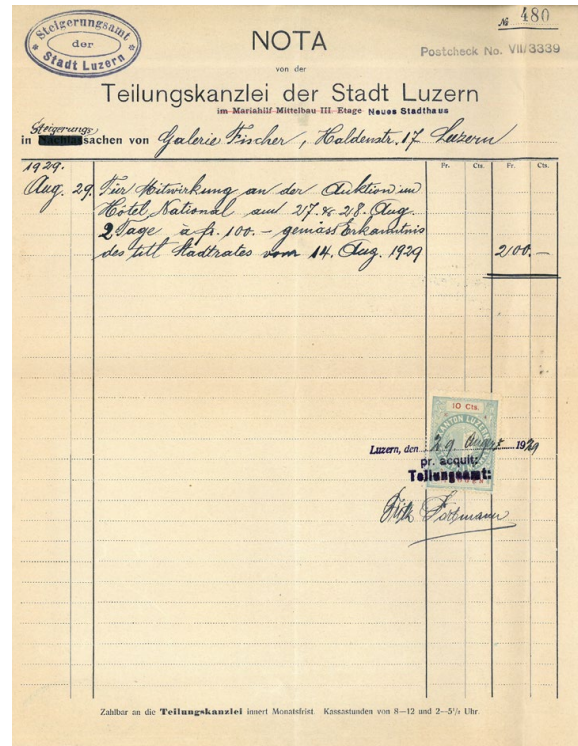 Steigerungsamt
der
Stadt Luzern
№ 480
NOTA
Postcheck No. VII/3339
von der
Teilungskanzlei der Stadt Luzern
im Mariahilf Mittelbau III. Etage Neues Stadthaus
Steigerungs
in Nachlasssachen von Galerie Fischer, Haldenstr. 17 Luzern
1929. Fr. Cts. Fr. Cts.
Aug. 29. Für Mitwirkung an der Auktion im
Hotel National am 27. & 28. Aug.
2 Tage à fr. 100.- gemäss Erkanntnis
des titl Stadtrates vom 14. Aug. 1929 200.-
10 Cts.
KANTON LUZERN
Luzern, den 29 August 1929
pr. acquit:
Teilungsamt:
Zahlbar an die Teilungskanzlei innert Monatsfrist. Kassastunden von 8—12 und 2—5½ Uhr.